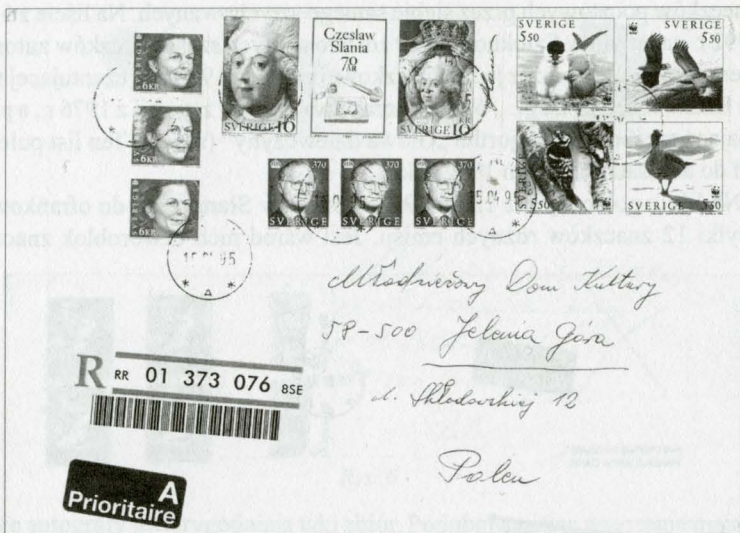 6KR
6KR
6KR
SVERIGE 10
Czesław
Słania
70
SVERIGE 10
SVERIGE
550
SVERIGE
550
550 SVERIGE
SVERIGE 550
370
SVERIGE
370
SVERIGE
370
SVERIGE
15.04.95
Młodzieżowy Dom Kultury
58-500 Jelenia Góra
ul. Skłodowskiej 12
Polen
R RR 01 373 076 8SE
A
Prioritaire